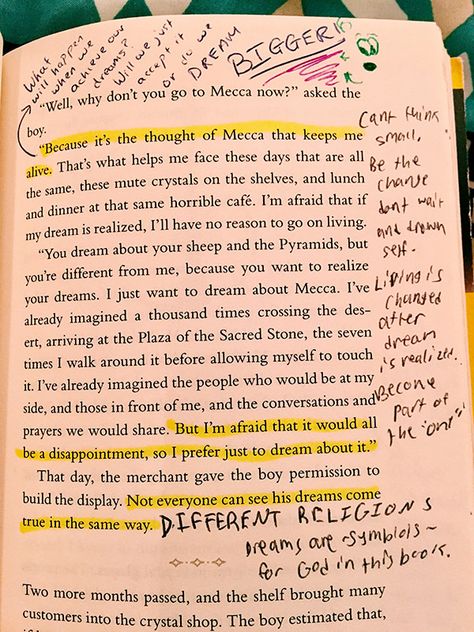 What
will happen
when we
achieve our
dreams?
Will we just
accept it
or do we
DREAM
BIGGER!
"Well, why don't you go to Mecca now?" asked the
boy.
"Because it's the thought of Mecca that keeps me
alive. That's what helps me face these days that are all
the same, these mute crystals on the shelves, and lunch
and dinner at that same horrible café. I'm afraid that if
my dream is realized, I'll have no reason to go on living.
"You dream about your sheep and the Pyramids, but
you're different from me, because you want to realize
your dreams. I just want to dream about Mecca. I've
already imagined a thousand times crossing the des-
ert, arriving at the Plaza of the Sacred Stone, the seven
times I walk around it before allowing myself to touch
it. I've already imagined the people who would be at my
side, and those in front of me, and the conversations and
prayers we would share. But I'm afraid that it would all
be a disappointment, so I prefer just to dream about it."
That day, the merchant gave the boy permission to
build the display. Not everyone can see his dreams come
true in the same way.
Cant think
small.
Be the
change
dont wait
and drown
self.
Living is
changed
after
dream
is realized.
Become
part of
the "one"
DIFFERENT RELIGIONS
Dreams are ~symbols~
for God in this book.
Two more months passed, and the shelf brought many
customers into the crystal shop. The boy estimated that,